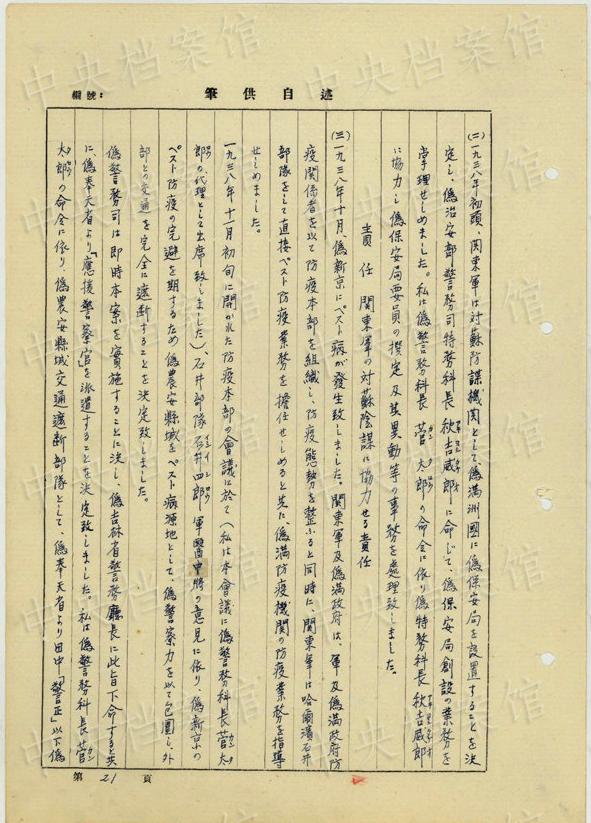 編號:
筆供自述
(二)一九三八年初頭、関東軍は対蘇防諜機関として、偽満洲國に偽保安局を設置することを決
定し、偽治安部警務司特務科長 秋吉威郎に命じて、偽保安局創設の業務を
掌理せしめました。私は偽警務科長 菅太郎の命令に依り偽特務科長 秋吉威郎
に協力し、偽保安局要員の撰定及其異動等の事務を処理致しました。
責任 関東軍の対蘇陰謀に協力せる責任
(三)一九三八年十月、偽新京にペスト病が發生致しました。関東軍及偽満政府は、軍及偽満政府防
疫関係者を以て防疫本部を組織し、防疫態勢を整ふると同時に、関東軍は哈爾濱石井
部隊をして直接ペスト防疫業務を擔任せしめると共に、偽満防疫機関の防疫業務を指導
せしめました。
一九三八年十一月初旬に開かれた防疫本部の會議に於て(私は本會議に偽警務科長 菅太
郎の代理として出席致しました)、石井部隊 石井四郎 軍醫中將の意見に依り、偽新京の
ペスト防疫の完避を期するため、偽農安縣城をペスト病源地として、偽警察力を以て包圍し、外
部との交通を完全に遮断することを決定致しました。
偽警務司は即時本案を實施することに決し、偽吉林省警務廳長に此旨下命すると共
に、偽奉天省より「應援警察官」を派遣することを決定致しました。私は偽警務科長 菅
太郎の命令に依り、偽農安縣城交通遮断部隊として、偽奉天省より田中「警正」以下偽
第 21 頁
中央档案馆